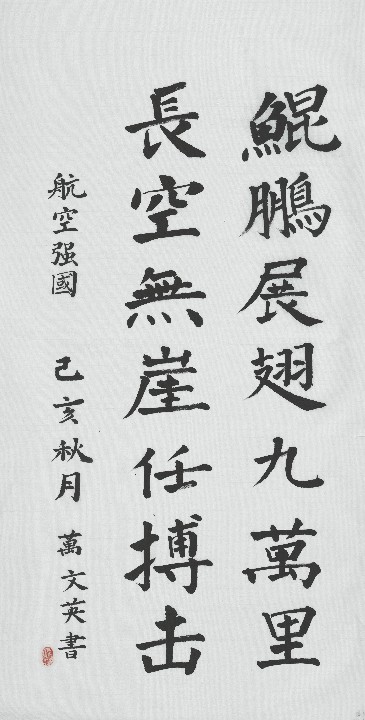 鯤鵬展翅九萬里
長空無崖任搏击
航空强國 己亥秋月 萬文英書